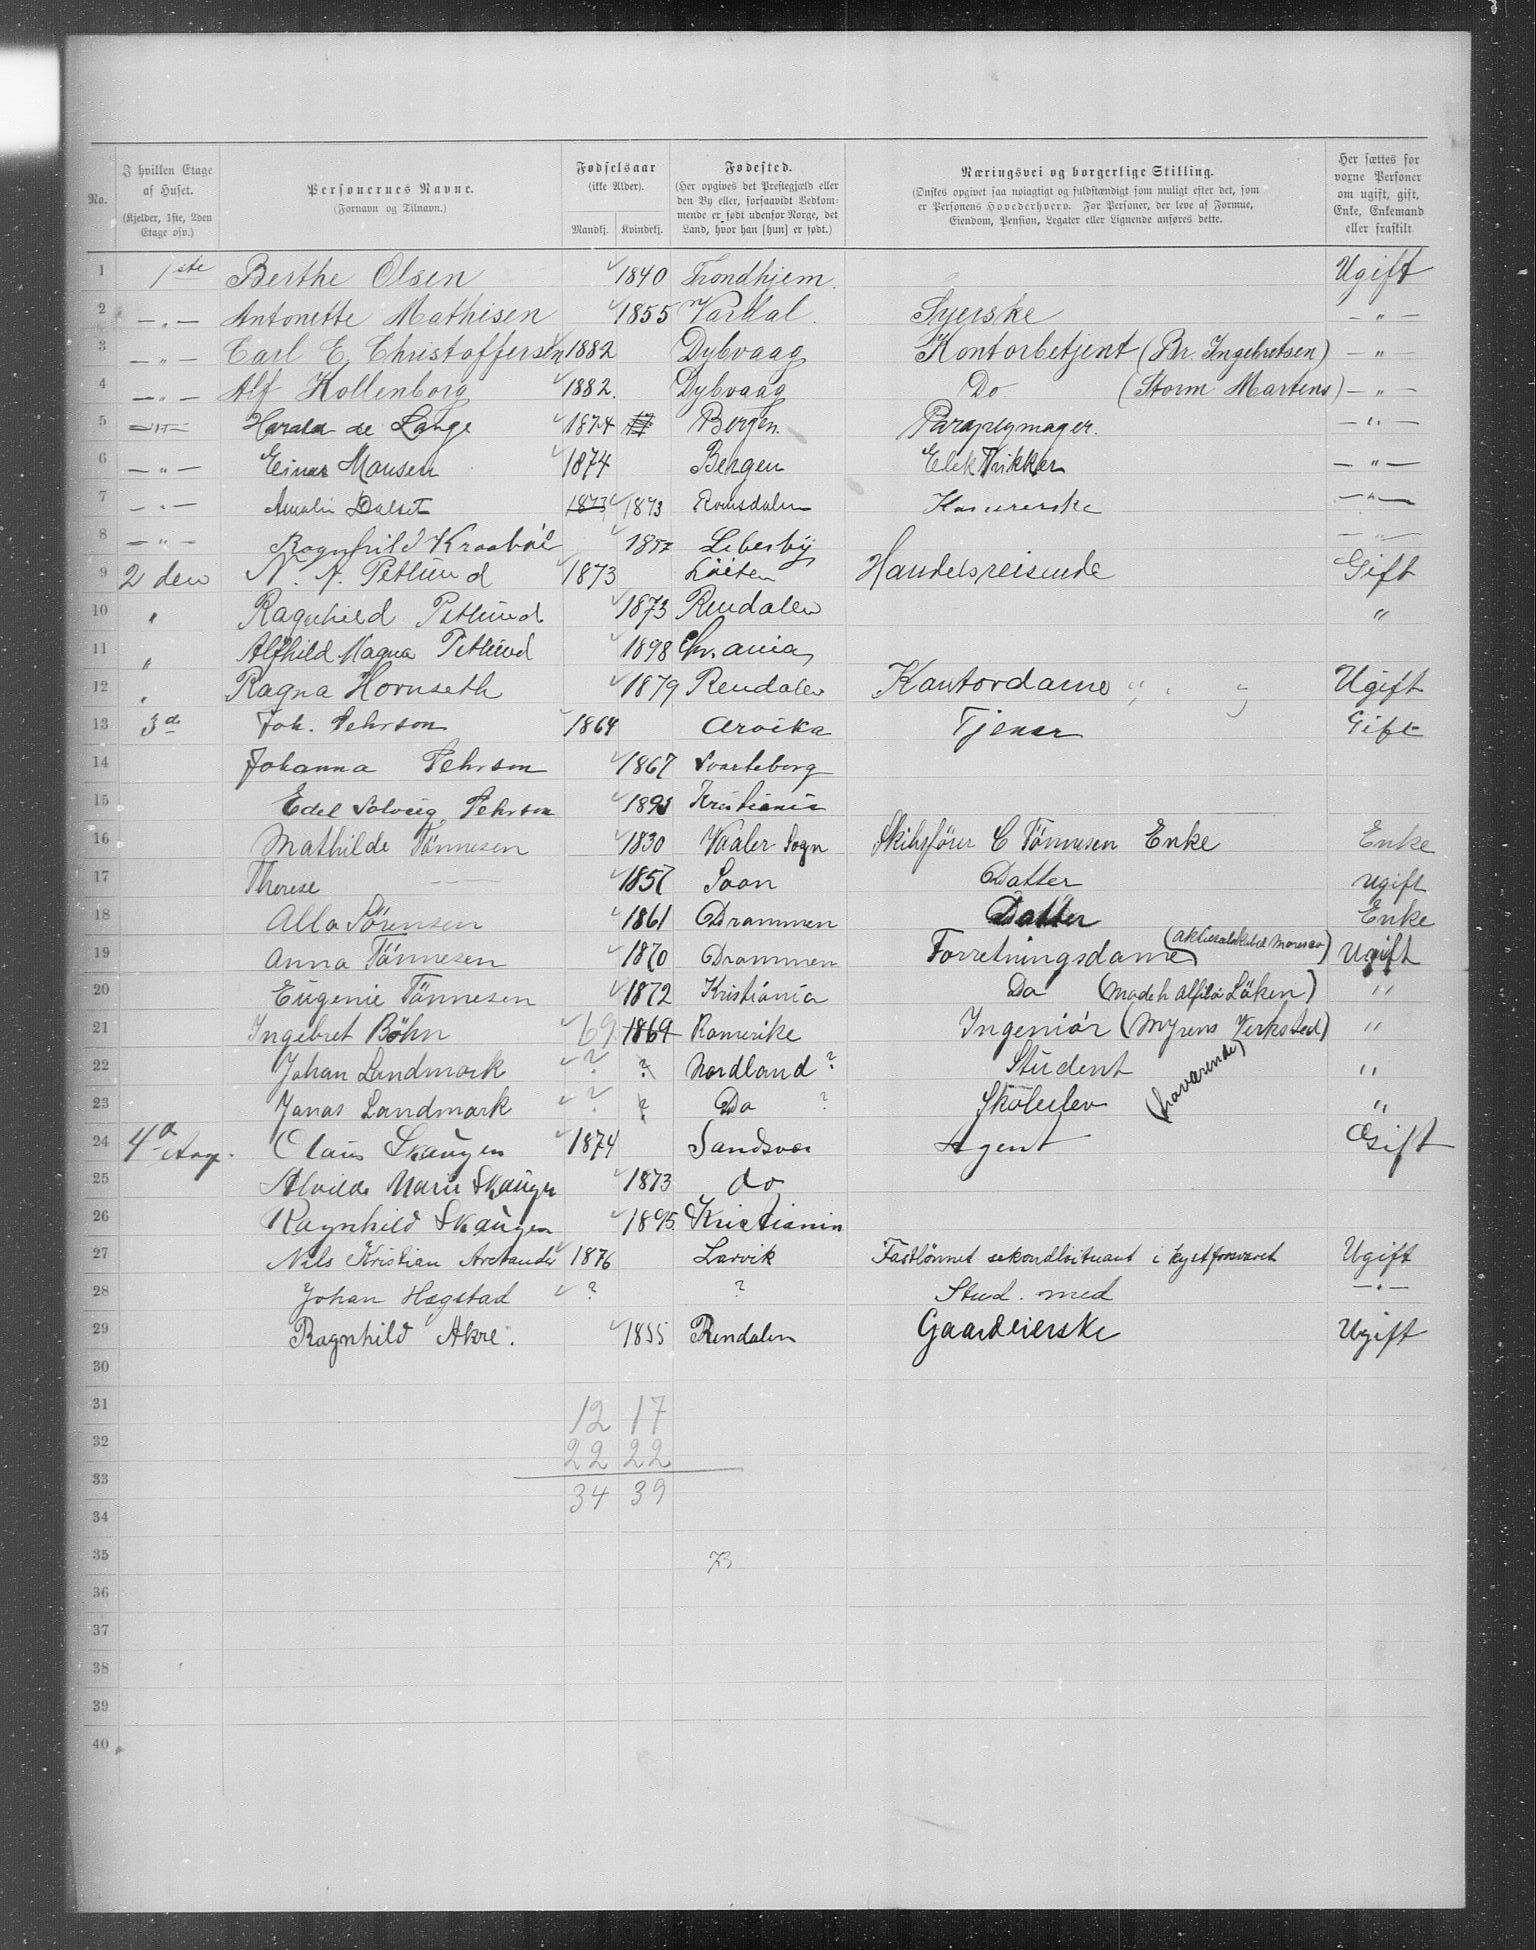 No.
I hvilken Etage af Huset. (Kjelder, 1ste, 2den Etage osv.)
Personernes Navne. (Fornavn og Tilnavn.)
Fødselsaar (ikke Alder). Mandkj. Kvindekj.
Fødested. (Her opgives det Prestegjæld eller den By eller, forsaavidt Vedkommende er født udenfor Norge, det Land, hvor han [hun] er født.)
Næringsvei og borgerlige Stilling. (Ønskes opgivet saa nøiagtig og fuldstændigt som muligt efter det, som er Personens Hovederhverv. For Personer, der leve af Formue, Eiendom, Pension, Legater eller Lignende anføres dette.
Her sættes for voxne Personer om ugift, gift, Enke, Enkemand eller fraskilt
1 1ste Berthe Olsen 1840 Trondhjem Ugift
2 — „ — Antonette Mathisen 1855 Vardal Syerske — „ —
3 — „ — Carl E. Christoffersen 1882 Dybvaag Kontorbetjent (Br. Ingebretsen) — „ —
4 — „ — Alf Hollenborg 1882. Dybvaag Do (Storm Martens) — „ —
5 — „ — Harald de Lange 1874 Bergen. Paraplymager. — „ —
6 — „ — Einar Monsen 1874 Bergen Elektrikker — „ —
7 — „ — Amalie Dalset 1873 1873 Romsdalen — „ —
8 — „ — Ragnhild 1857 Lebesby — „ —
9 2 den N. N. Petlund 1873 Löiten Handelsreisende Gift
10 „ Ragnhild Petlund 1873 Rendalen „
11 „ Alfhild Magna Petlund 1898 Chr.ania
12 „ Ragna Hornseth 1879 Rendalen Kontordame Ugift
13 3de Joh. Pehrson 1864 Arvika Tjener Gift
14 Johanna Pehrson 1867 Svarteborg
15 Edel Solveig Pehrson 1895 Kristiania
16 Mathilde Tönnesen 1830 Vaaler Sogn Skibsförer C Tönnesen Enke Enke
17 Therese — 1857 Soon Datter Ugift
18 Alla Sörensen 1861 Drammen Datter Enke
19 Anna Tönnesen 1870 Drammen Forretningsdame Ugift
20 Eugenie Tönnesen 1872 Kristiania Do (Modeh. Löken) „
21 Ingebret Böhn 69 1869 Romerike Ingeniör (Myrens Verksted) „
22 Johan Landmark ? ? Nordland ? Student „
23 Jonas Landmark ? ? Do ? Skoleelev (fraværende) „
24 4de Claus Skaugen 1874 Sandsvær Agent Gift
25 Alvilde Marie Skaugen 1873 do
26 Ragnhild Skaugen 1895 Kristiania
27 Nils Kristian Arctander 1876 Larvik Fastlönnet sekondlöitnant i kystforsvaret Ugift
28 Johan Hægstad ? ? Stud. med — „ —
29 Ragnhild Akre. 1855 Rendalen Gaardeierske Ugift
30
31 12 17
32 22 22
33 34 39
34
35 73
36
37
38
39
40